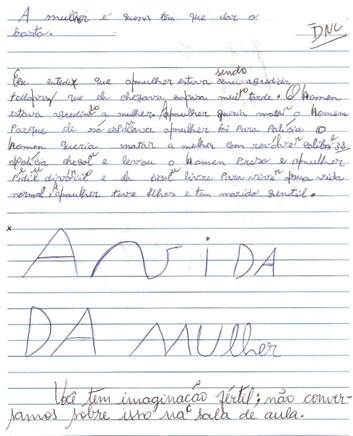 A mulher é quem tem que dar o
basta.
DNC
Eu entedir que a mulher estava sendo agredida
todos que ela chegava em casa muito tarde. O Homem
estava agredindo a mulher, a mulher queria matar o Homem
Porque de só espancava a mulher foi Para Policia O
Homem queria matar a melher com revólver calibri 38
a Policia chegou e levou o Homem Preso e a mulher
Pidil divorcil e ela ficol livre Para viver sua vida
normal, A mulher teve filhos e tem marido gentil.
x
A VIDA
DA MULher
Você tem imaginação fértil; não conver-
samos sobre isso na sala de aula.